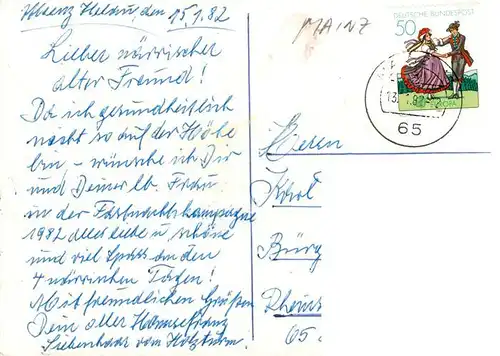 Koblenz Helau, den 15.1.82
Lieber närrischer
alter Freund!
Da ich gesundheitlich
nicht so auf der Höhe
bin - wünsche ich Dir
und Deiner lb. Frau
in der Fastnachtskampagne
1982 alles Liebe u. schöne
und viel Spass an den
4 närrischen Tagen!
Mit freundlichen Grüßen
Dein alter
Liebenhaar vom Holzturm.
MAINZ
DEUTSCHE BUNDESPOST
50
65
Karl
65.